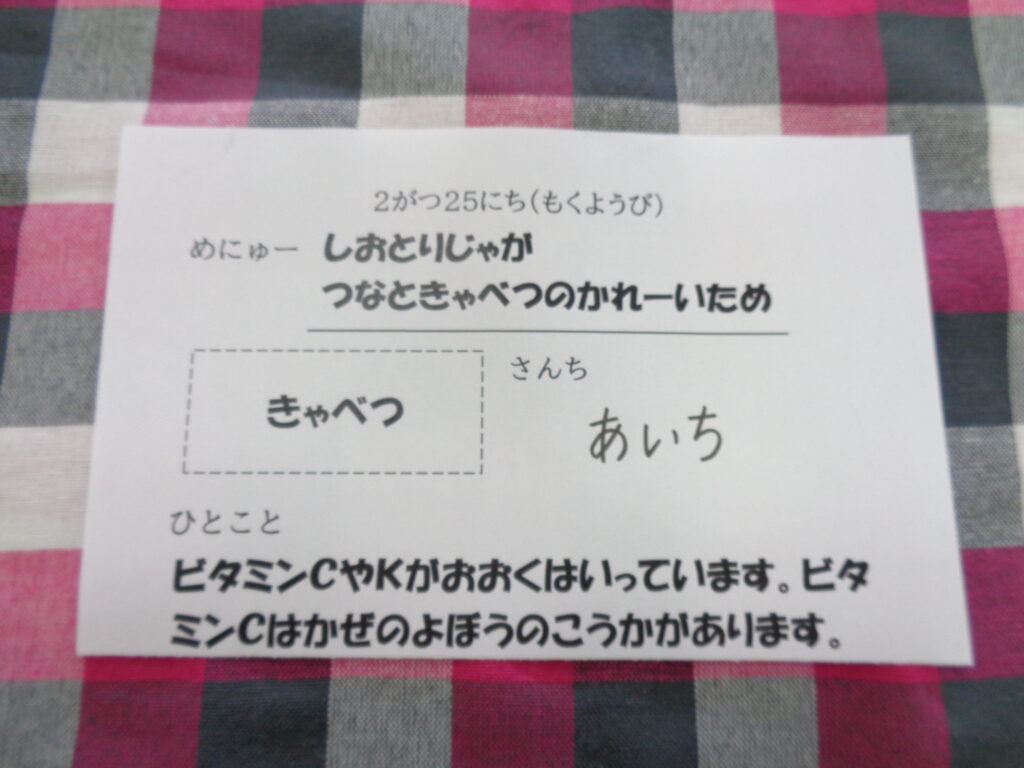 2がつ25にち(もくようび)
めにゅー しおとりじゃが
つなときゃべつのかれーいため
きゃべつ
さんち
あいち
ひとこと
ビタミンCやKがおおくはいっています。ビタ
ミンCはかぜのよぼうのこうかがあります。